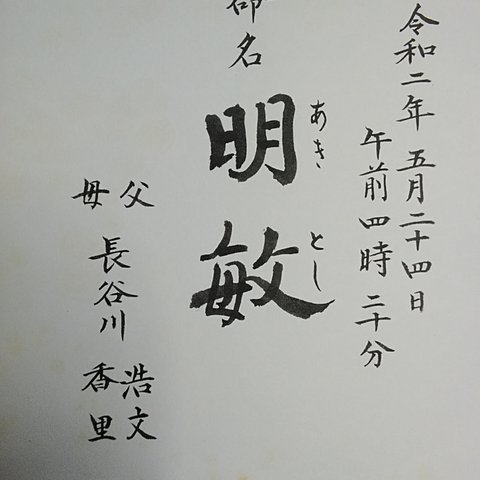 令和二年 五月二十四日
午前四時 二十分
あき とし
明敏
命名
父 浩文
長谷川
母 香里